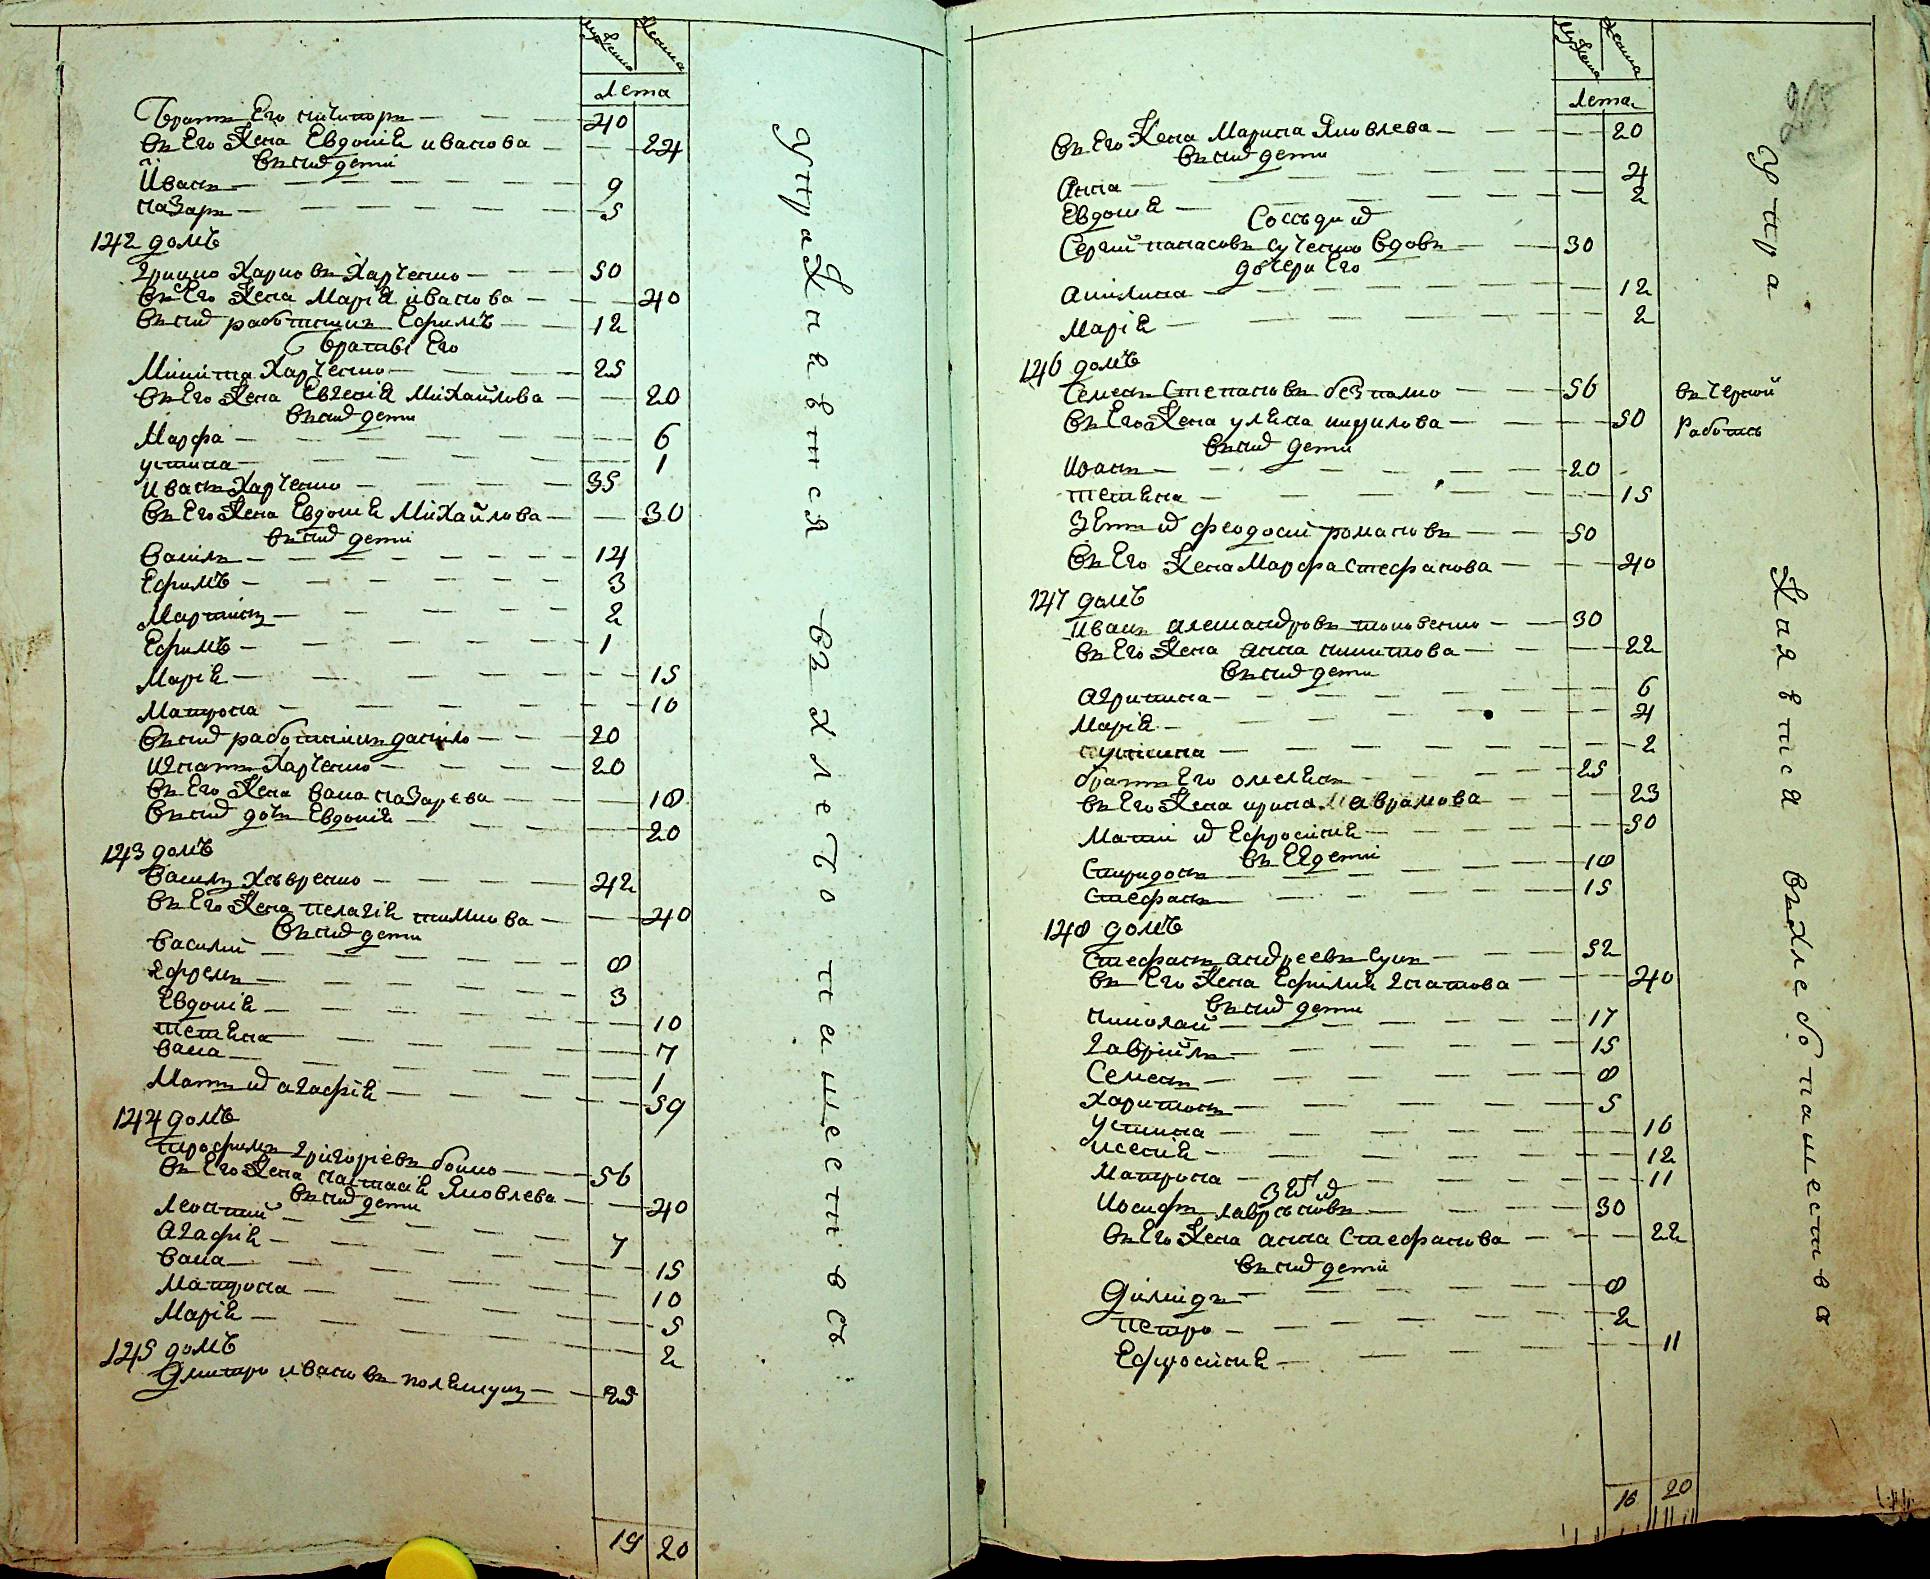 Мужеска Женска
Лета
Братъ Его никипоръ 40
въ Его Жена Евдокіѣ иванова 24
въ них дети
Иванъ 9
назаръ 5
142 домъ
грицко Харковъ Харченко 50
въ Его Жена Маріѣ иванова 40
въ них работникъ Ефимъ 12
Братьі Его
Микита Харченко 25
въ Его Жена Евгеніѣ Михайлова 20
въ них дети
Марфа 6
устина 1
иванъ Харченко 35
въ Его Жена Евдокіѣ Михайлова 30
въ них дети
василь 14
Ефимъ 3
Мартинъ 2
Ефимъ 1
Маріѣ 15
Матрона 10
въ них работникъ данило 20
игнатъ Харченко 20
въ Его Жена васа назарева 18
въ них дочь Евдокіѣ 20
143 домъ
василь 42
въ Его Жена пелагіѣ 40
въ них дети
василий 8
Ефремъ 3
Евдокіѣ 10
тетѣна 7
васа 1
Мать их агафіѣ 59
144 домъ
трофимъ григоріевъ бойко 56
въ Его Жена настасіѣ Яковлева 40
въ них дети
леонтий 7
агафіѣ 15
васа 10
Матрона 5
Маріѣ 2
145 домъ
Дмитро ивановъ полѣщукъ 25
19 20
упраЖнаются въ хлебопашестивъ
Мужеска Женска
Лета
въ Его Жена Марина Яковлева 20
въ них дети
анна 4
Евдокіѣ 2
Соседи их
Сергий панасовъ вдовъ 30
дочери Его
акилина 12
Маріѣ 2
146 домъ
Семенъ Степановъ безпалко 56
въ Его Жена улѣна 50
въ них дети
иванъ 20
тетѣна 15
Зѣть их феодосий романовъ 50
въ Его Жена Марфа Стефанова 40
въ черной
Работы
147 домъ
иванъ александровъ 30
въ Его Жена анна никитова 22
въ них дети
агрипина 6
Маріѣ 4
устина 2
братъ Его омелѣнъ 25
въ Его Жена ирина аврамова 23
Мати их Ефросиніѣ 50
въ Ея дети
Спиридонъ 18
Стефанъ 15
148 домъ
Стефанъ андреевъ 52
въ Его Жена Ефиміѣ игнатова 40
въ них дети
николай 17
гаврийлъ 15
Семенъ 8
Харитонъ 5
устина 16
ксеніѣ 12
Матрона 11
Зѣть их
иосифъ 30
въ Его Жена анна Стефанова 22
въ них дети
Димидъ 8
петро 2
Ефросиніѣ 11
16 20
268
упра Жнаются въ хлебопашества